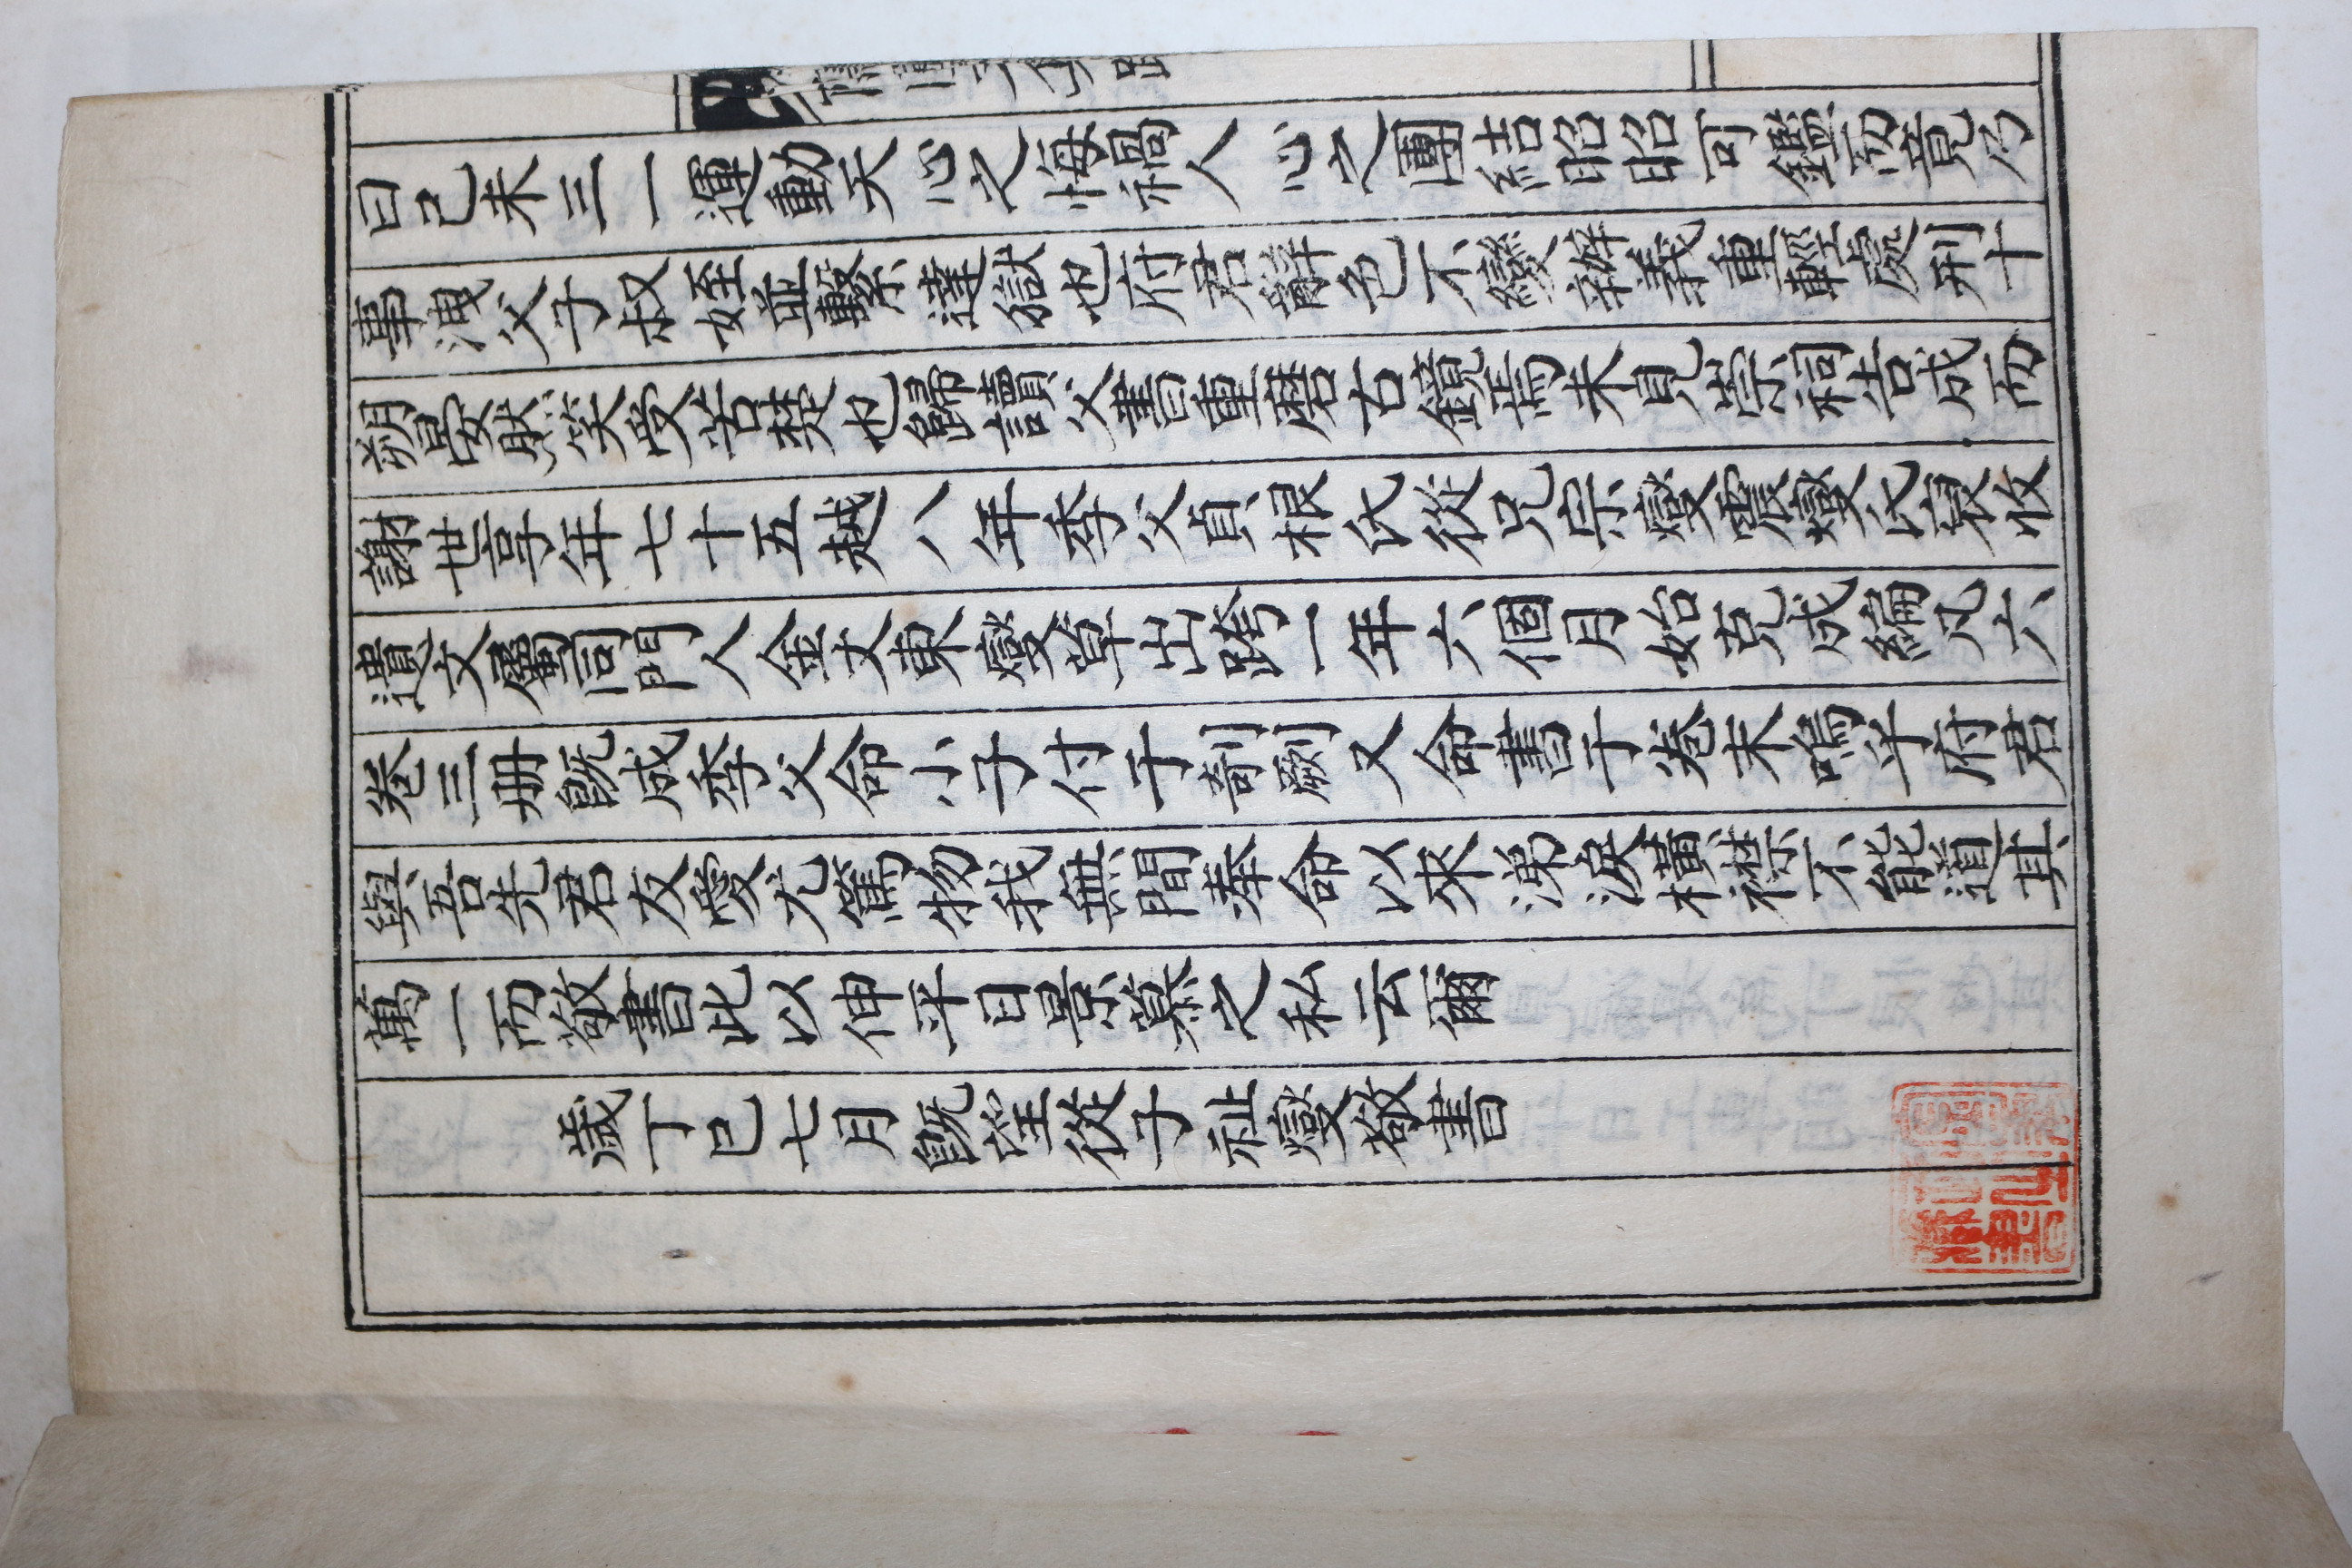 曰己未三一運動天心之悔禍人心之團結昭昭可鑑而竟乃
事洩父子叔姪並繫達獄也府君辭色不變辦義重輕處刑十
朔晏然笑受苦楚也歸讀父書重磨古鏡焉未見崇祠告成而
謝世享年七十五越八年季父貞根氏從兄宗燮震燮氏裒收
遺文屬同門人金丈東燮草出跨一年六個月始克成編凡六
卷三册旣成季父命小子付于剞劂又命書于卷末嗚乎府君
與吾先君友愛尤篤物我無間奉命以來涕淚橫襟不能道其
萬一而敬書此以伸平日景慕之私云爾
歲丁巳七月旣望從子祉燮敬書
藏書